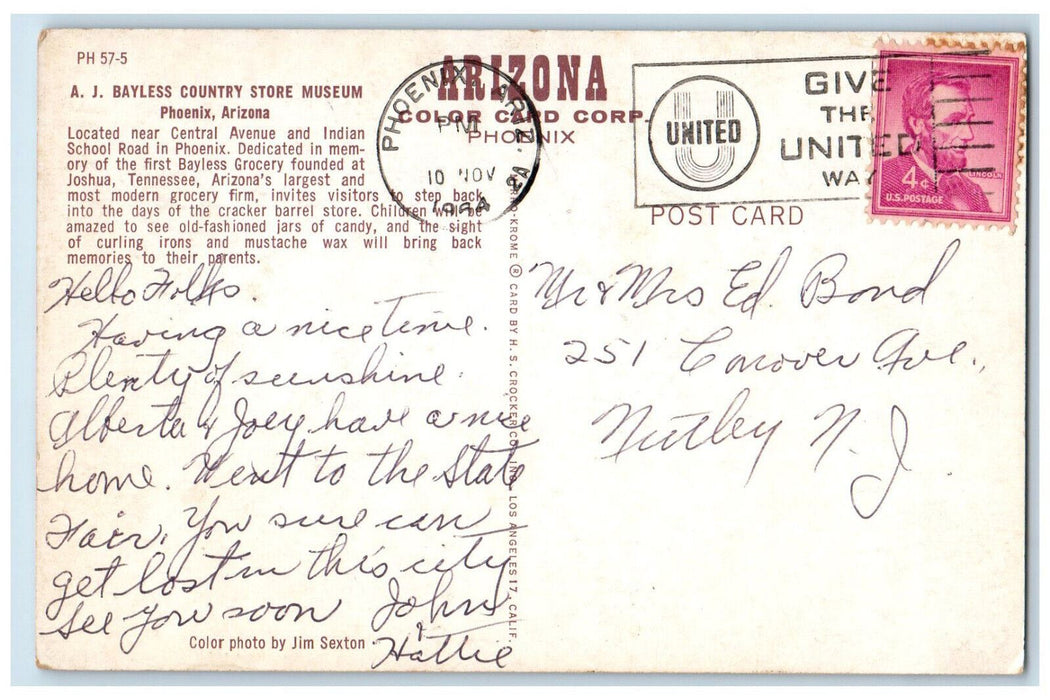 PH 57-5
A. J. BAYLESS COUNTRY STORE MUSEUM
Phoenix, Arizona
Located near Central Avenue and Indian
School Road in Phoenix. Dedicated in mem-
ory of the first Bayless Grocery founded at
Joshua, Tennessee, Arizona's largest and
most modern grocery firm, invites visitors to step back
into the days of the cracker barrel store. Children will be
amazed to see old-fashioned jars of candy, and the sight
of curling irons and mustache wax will bring back
memories to their parents.
Hello Folks.
Having a nice time.
Plenty of sunshine.
Alberta & Joey have a nice
home. Went to the State
Fair. You sure can
get lost in this city
See you soon John
&
Hattie
Color photo by Jim Sexton
ARIZONA
COLOR CARD CORP.
PHOENIX
PHOENIX, ARIZ.
PM
10 NOV
CARD BY H. S. CROCKER CO., INC. LOS ANGELES 17, CALIF.
UNITED
GIVE
THE
UNITED
WAY
LINCOLN
4¢
U.S. POSTAGE
POST CARD
Mr & Mrs Ed. Bond
251 Conover Ave.,
Nutley N. J.